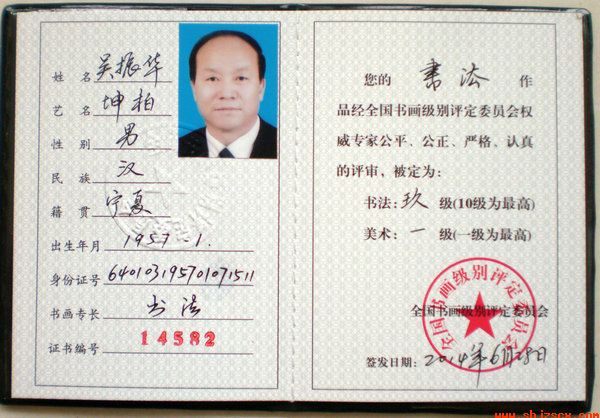 姓名 吴振华
艺名 坤柏
性别 男
民族 汉
籍贯 宁夏
出生年月 1957-1.
身份证号 640103195701071511
书画专长 书法
证书编号 14582
您的 书法 作
品经全国书画级别评定委员会权
威专家公平、公正、严格、认真
的评审，被定为：
书法：玖 级(10级为最高)
美术：一 级(一级为最高)
全国书画级别评定委员会
全国书画级别评定委员会
签发日期：2014年6月28日
www.shjzscx.com